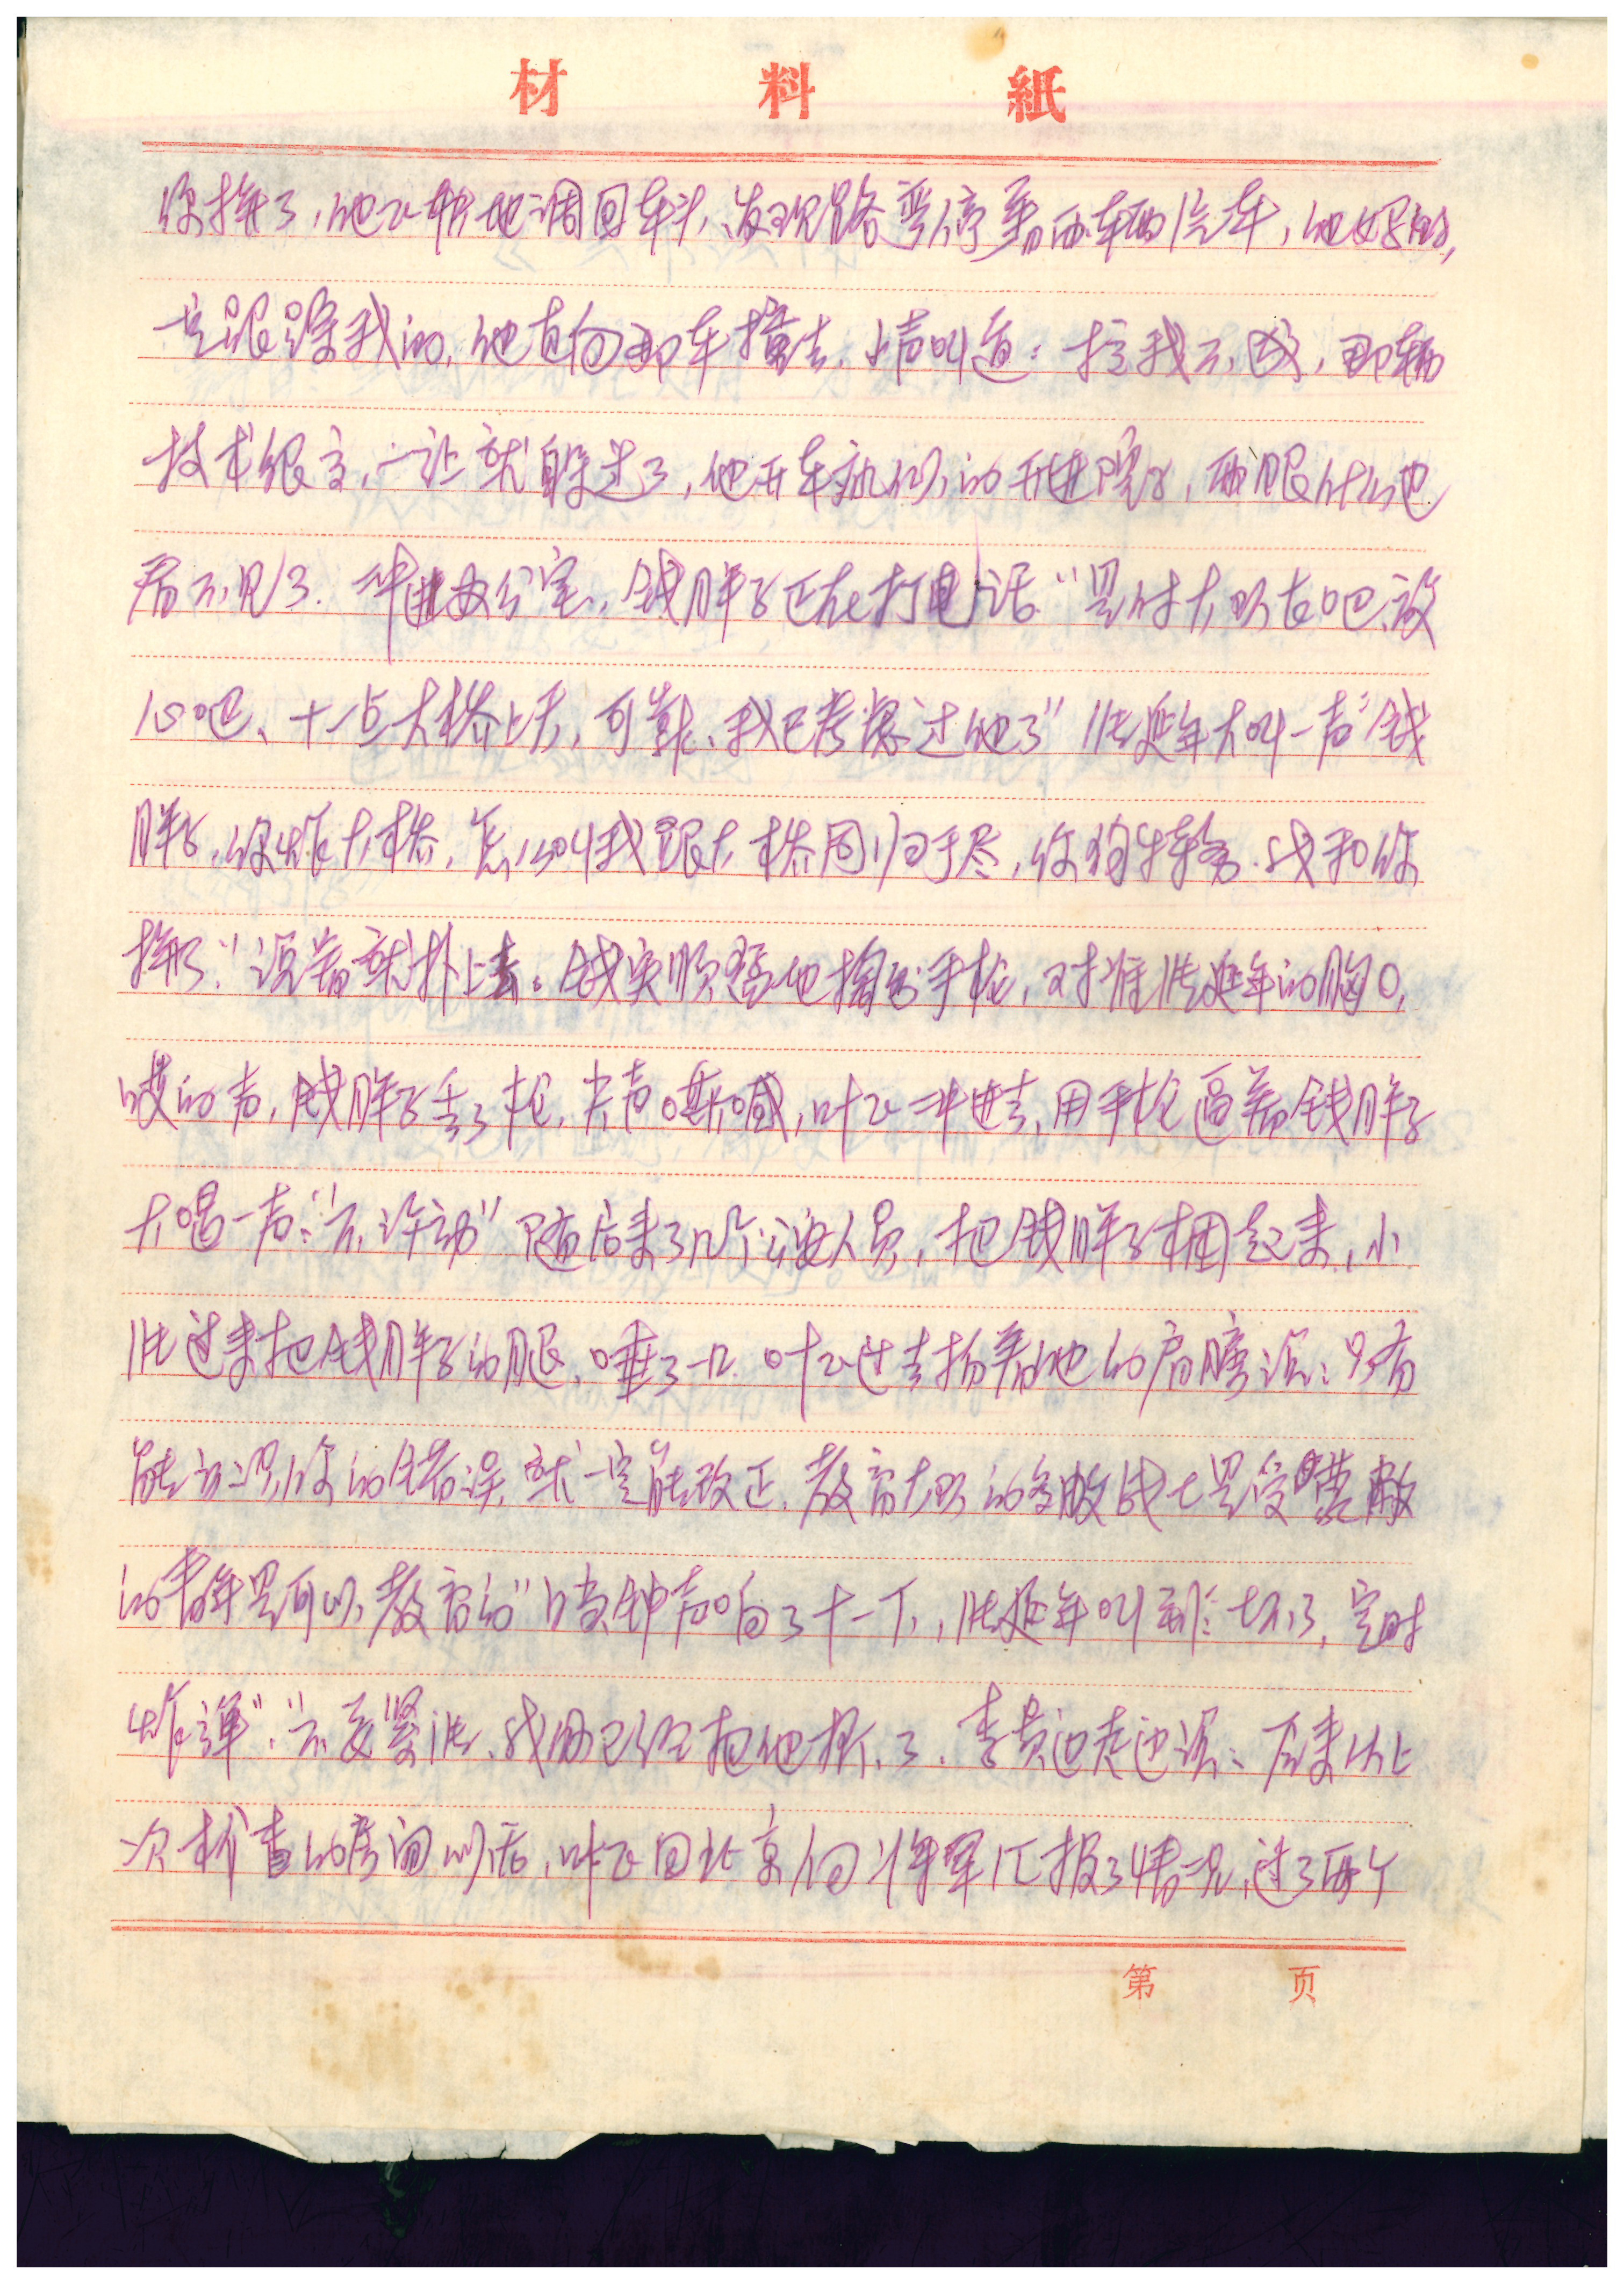 材料紙
你拼了，他飞快地调回车头，发现路旁停着两辆汽车，他好的，
一定是跟踪我的，他直向那车撞去，大声叫道：拉我不成，那辆
技术很高，一让就躲过了，他开车疯似的开进院子，两眼什么也
看不见了．冲进办公室，钱胖子正在打电话“是付大队长吧，放
心吧、十一点大桥上天，可靠、我已考察过他了”张延年大叫一声“钱
胖子，你炸大桥，怎么叫我跟大桥同归于尽，你狗特务．我和你
拼了．”说着就扑上去。钱突顺势地掏出手枪，对准张延年的胸口，
的声，钱胖子丢了枪，大声嘶喊，叶飞冲进去，用手枪逼着钱胖子
大喝一声：“不许动”随后来了几个公安人员，把钱胖子捆起来，小
张过来把钱胖子的腿，唾了一口．叶飞过去扬着他的肩膀说：只有
能认识你的错误，就一定能改正．教育大队的多数战士是受蒙蔽
的青年是可以教育的”当钟声响了十一下，张延年叫到：坏了，定时
炸弹”．“不要紧张、我们已经把他拆了．李贵边走边说：原来从上
次检查的房间以后，叶飞回北京向将军汇报了情况，过了两个
第 页